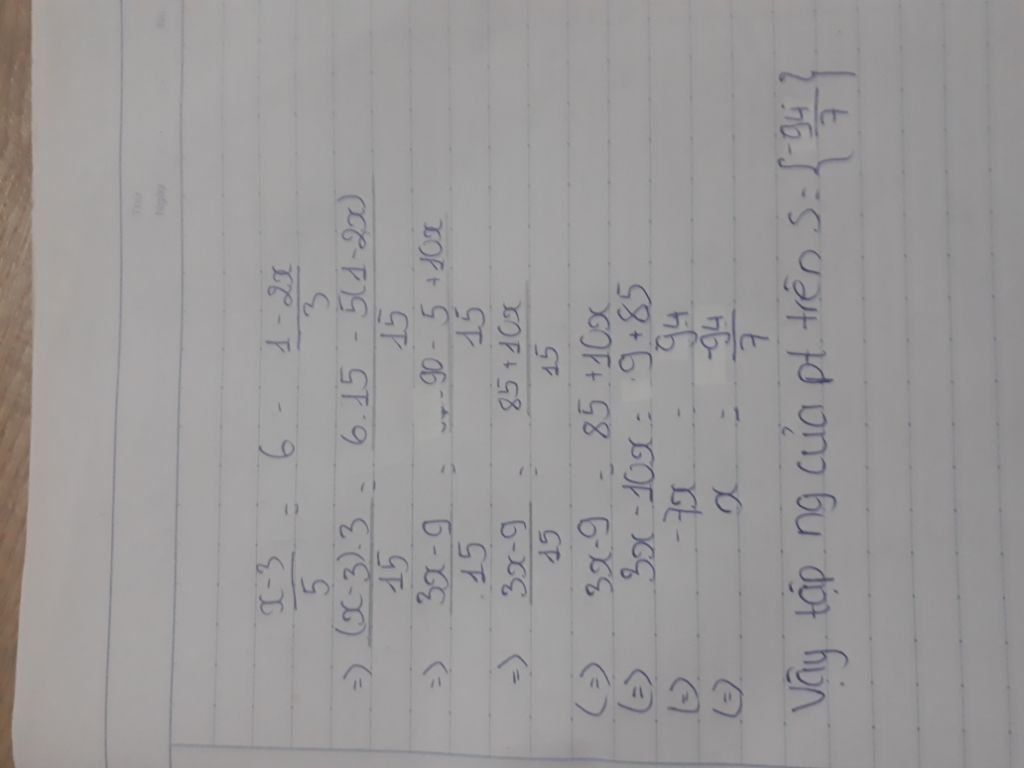 Thứ
Ngày No.
x-3/5 = 6 - 1-2x/3
=) (x-3).3/15 = 6.15 - 5(1-2x)/15
=) 3x-9/15 = 90-5+10x/15
=) 3x-9/15 = 85+10x/15
(=) 3x-9 = 85+10x
(=) 3x-10x = 9+85
(=) -7x = 94
(=) x = -94/7
Vậy tập ng của pt trên S={-94/7}